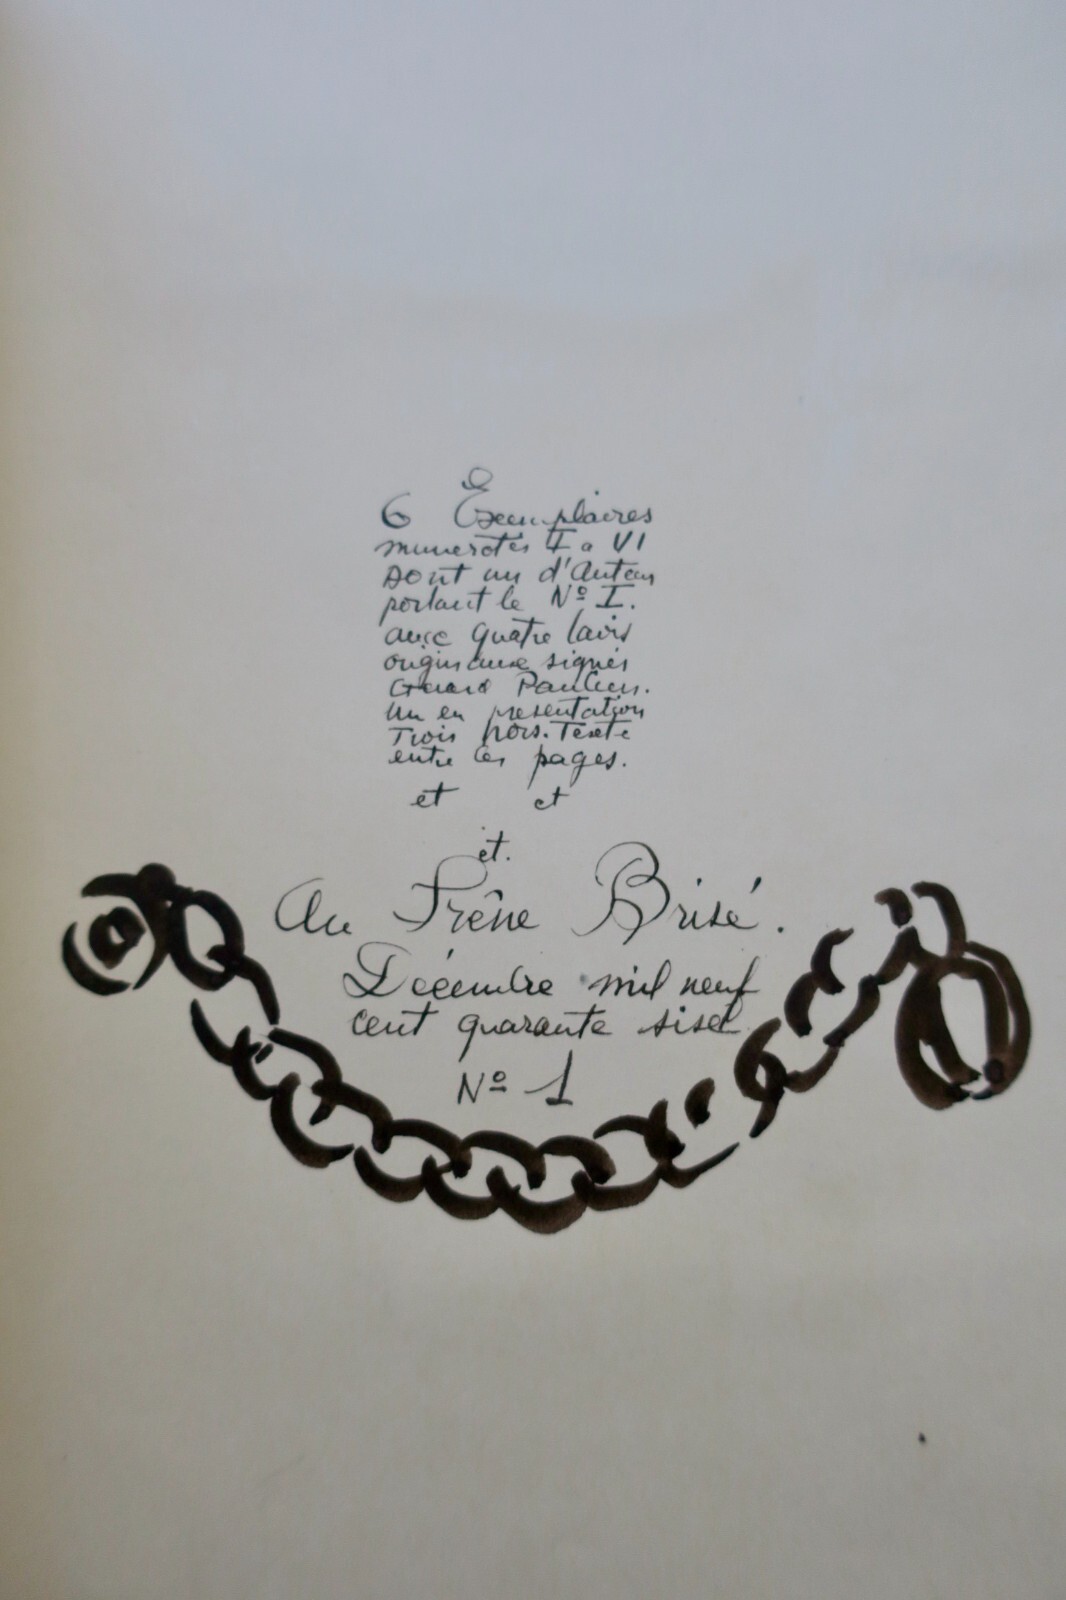 6 Exemplaires
numerotés I a VI
Dont un d'Auteur
portant le Nº I.
avec quatre lavis
originaux signés
Gerard
un en presentation
Trois hors-Texte
entre les pages.
et et
et.
Au Frêne Brisé.
Décembre mil neuf
cent quarante six
Nº 1